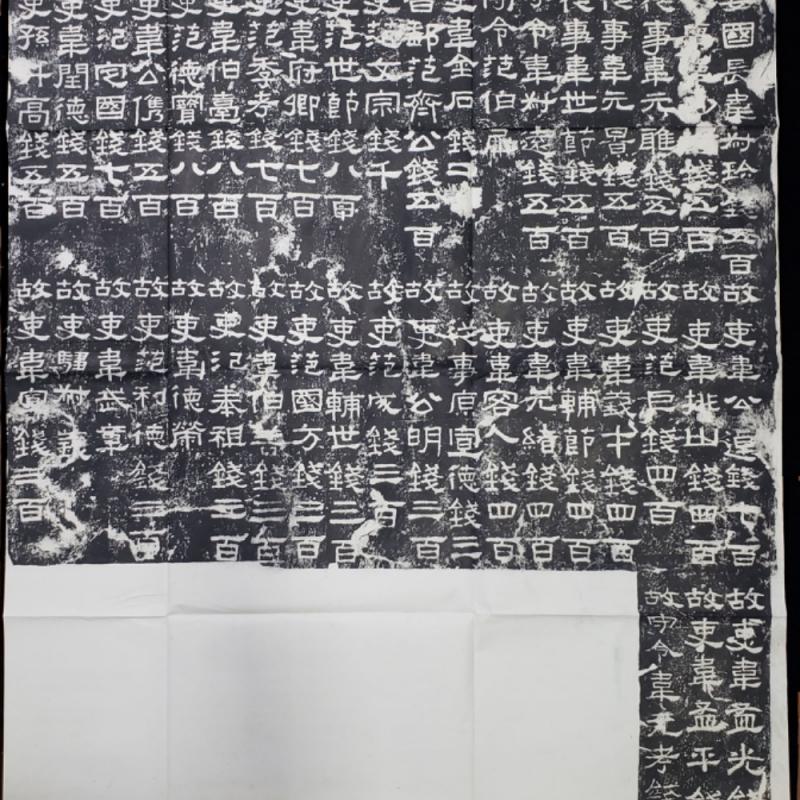 國長韋叔珍錢五百
錢五百
事韋元雕錢五百
事韋元景錢五百
事韋世節錢五百
令韋叔遠錢五百
令范伯犀
韋金石錢二
郵范齊公錢五百
范文宗錢千
吏范世節錢八百
吏韋府卿錢七百
吏范季考錢七百
吏韋伯臺錢八百
吏范德寶錢八百
吏韋公儁錢五百
吏氾定國錢七百
吏韋閏德錢五百
吏孫升高錢五百
故吏韋公逴錢七百
故吏韋排山錢四百
故吏范巨錢四百
故吏韋義才錢四百
故吏韋輔節錢四百
故吏韋元緒錢四百
故吏韋客人錢四百
故從事原宣德錢三
故吏韋公明錢三百
故吏范成錢三百
故吏韋輔世錢三百
故吏范國方錢三百
故吏韋伯善錢三百
故吏氾奉祖錢三百
故吏韋德榮
故吏范利德錢三百
故吏韋武章
故吏騶叔義
故吏韋宣錢三百
故吏韋孟光錢
故吏韋孟平錢
故守令韋元考錢